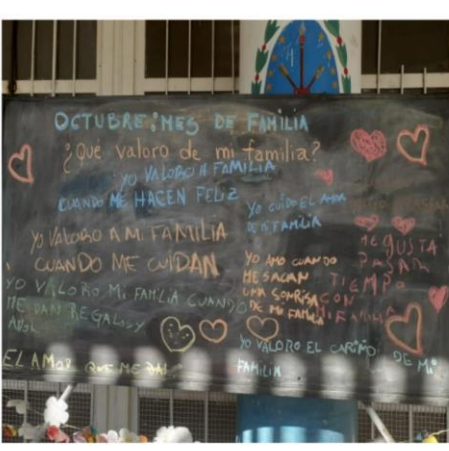 OCTUBRE: MES DE FAMILIA
¿Qué valoro de mi familia?
YO VALORO A FAMILIA
CUANDO ME HACEN FELIZ
YO VALORO A MI FAMILIA
CUANDO ME CUIDAN
YO VALORO MI FAMILIA CUANDO
ME DAN REGALOS Y
AMOR
EL AMOR QUE ME DAN
YO CUIDO EL AMOR
DE MI FAMILIA
YO AMO CUANDO
ME SACAN
UNA SONRISA
DE MI FAMILIA
ME GUSTA
PASAR
TIEMPO
CON
MI FAMILIA
YO VALORO EL CARIÑO DE MI
FAMILIA